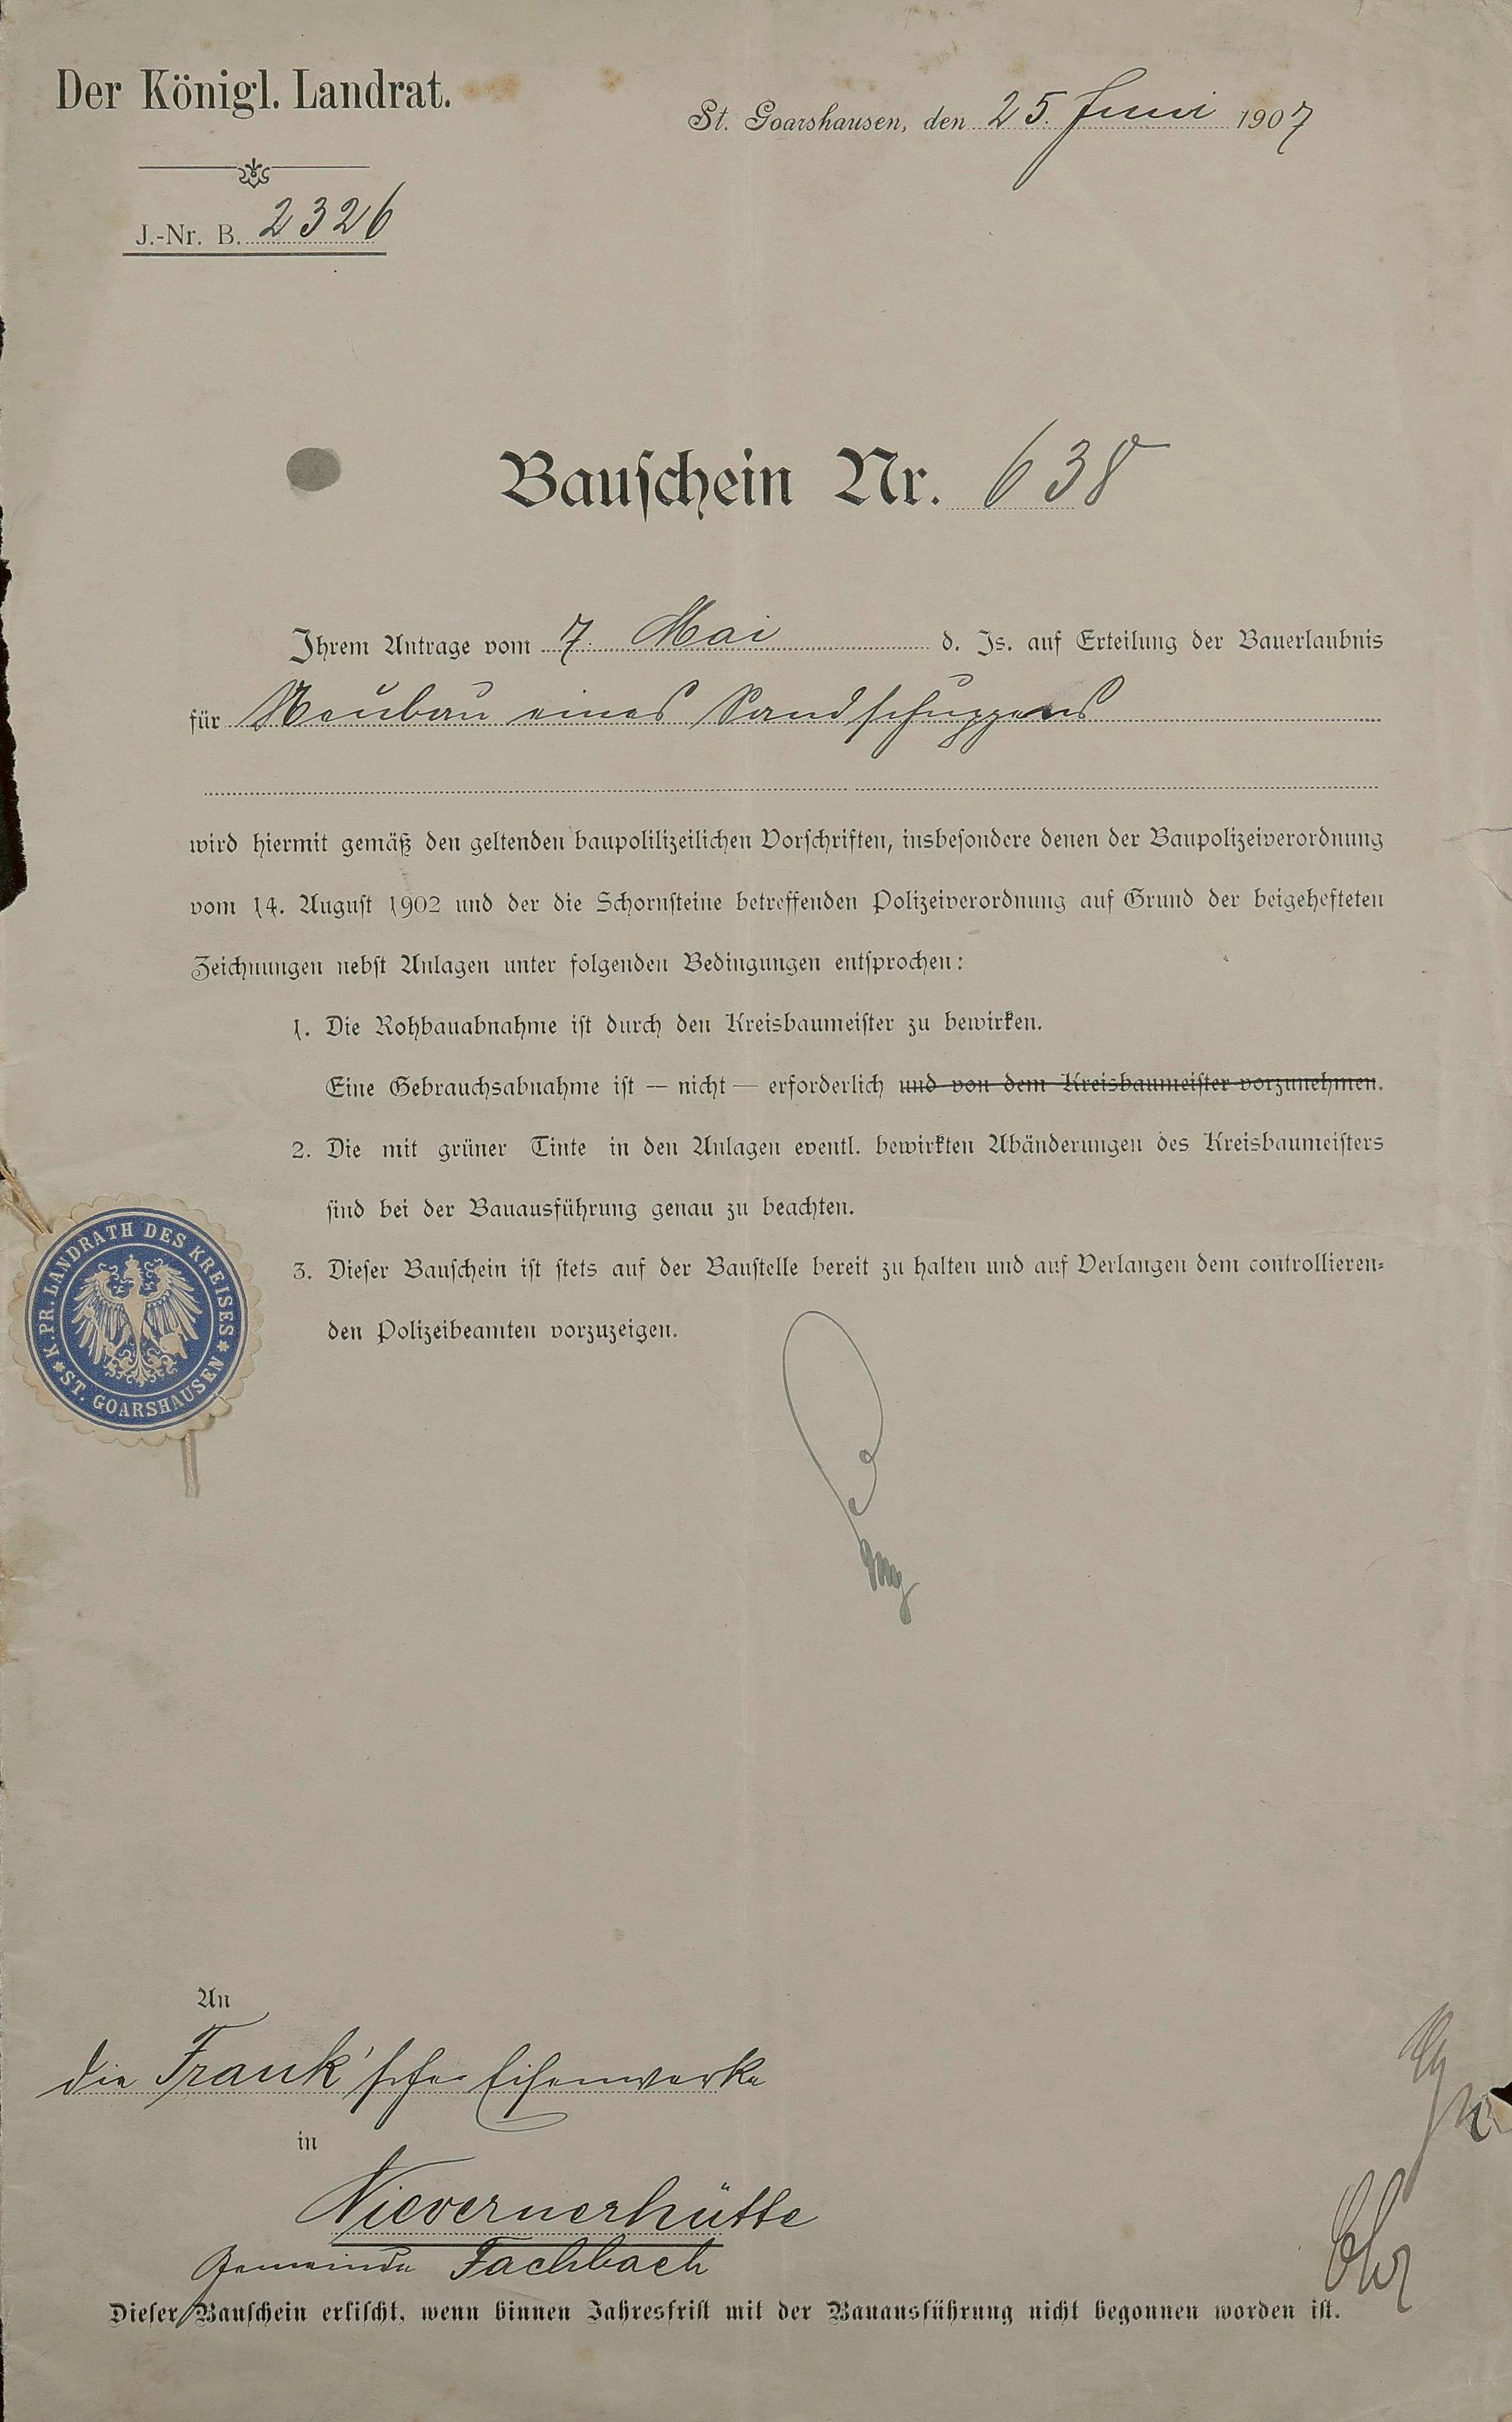 Der Königl. Landrat.
St. Goarshausen, den 25. Juni 1907
J.-Nr. B. 2326
Bauschein Nr. 638
Ihrem Antrage vom 7. Mai d. Js. auf Erteilung der Bauerlaubnis
für Neubau eines Sandschuppens
wird hiermit gemäß den geltenden baupolilizeilichen Vorschriften, insbesondere denen der Baupolizeiverordnung
vom 14. August 1902 und der die Schornsteine betreffenden Polizeiverordnung auf Grund der beigehefteten
Zeichnungen nebst Anlagen unter folgenden Bedingungen entsprochen:
1. Die Rohbauabnahme ist durch den Kreisbaumeister zu bewirken.
Eine Gebrauchsabnahme ist — nicht — erforderlich und von dem Kreisbaumeister vorzunehmen.
2. Die mit grüner Tinte in den Anlagen eventl. bewirkten Abänderungen des Kreisbaumeisters
sind bei der Bauausführung genau zu beachten.
3. Dieser Bauschein ist stets auf der Baustelle bereit zu halten und auf Verlangen dem controllieren-
den Polizeibeamten vorzuzeigen.
K. PR. LANDRATH DES KREISES
ST. GOARSHAUSEN
An
die Frank'sche Eisenwerke
in
Nievernerhütte
Gemeinde Fachbach
Dieser Bauschein erlischt, wenn binnen Jahresfrist mit der Bauausführung nicht begonnen worden ist.